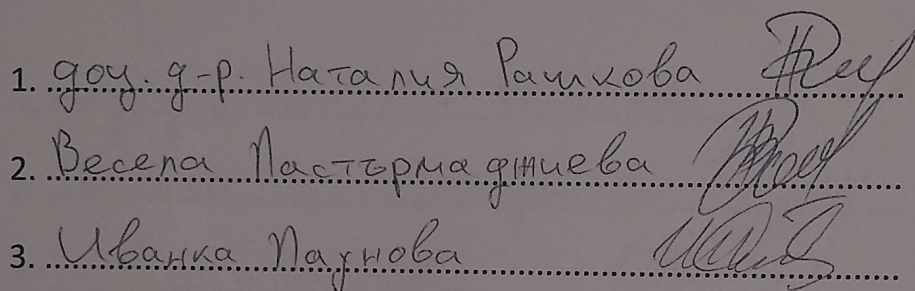 1. доц. д-р. Наталия Рашкова
2. Весела Пастърмаджиева
3. Иванка Паунова